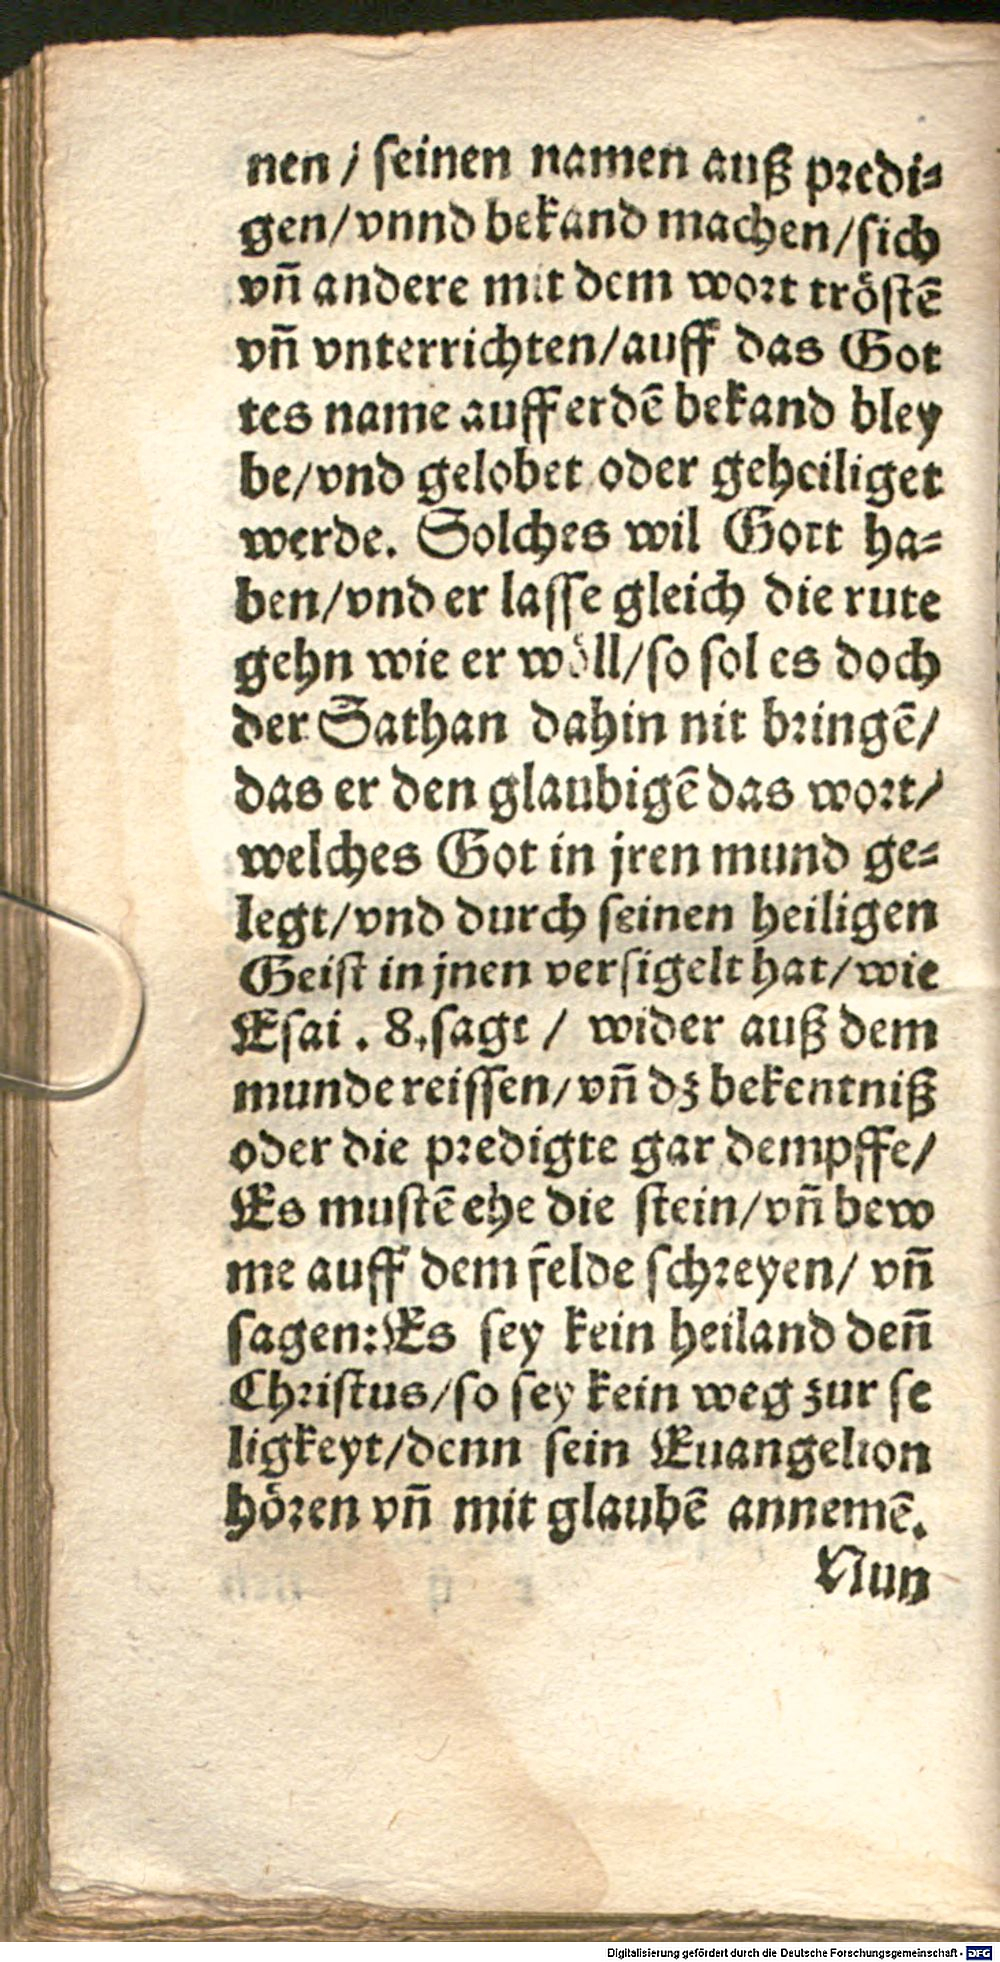 nen / seinen namen auß predi-
gen/vnnd bekand machen/sich
vñ andere mit dem wort tröstē
vñ vnterrichten/auff das Got
tes name auff erdē bekand bley
be/vnd gelobet oder geheiliget
werde. Solches wil Gott ha-
ben/vnd er lasse gleich die rute
gehn wie er wöll/so sol es doch
der Sathan dahin nit bringē/
das er den glaubigē das wort/
welches Got in jren mund ge-
legt/vnd durch seinen heiligen
Geist in jnen versigelt hat/wie
Esai . 8. sagt / wider auß dem
munde reissen/vñ dz bekentniß
oder die predigte gar dempffe/
Es mustē ehe die stein/vñ bew
me auff dem felde schreyen/ vñ
sagen: Es sey kein heiland deñ
Christus/so sey kein weg zur se
ligkeyt/denn sein Euangelion
hören vñ mit glaubē annemē.
Nun
Digitalisierung gefördert durch die Deutsche Forschungsgemeinschaft - DFG